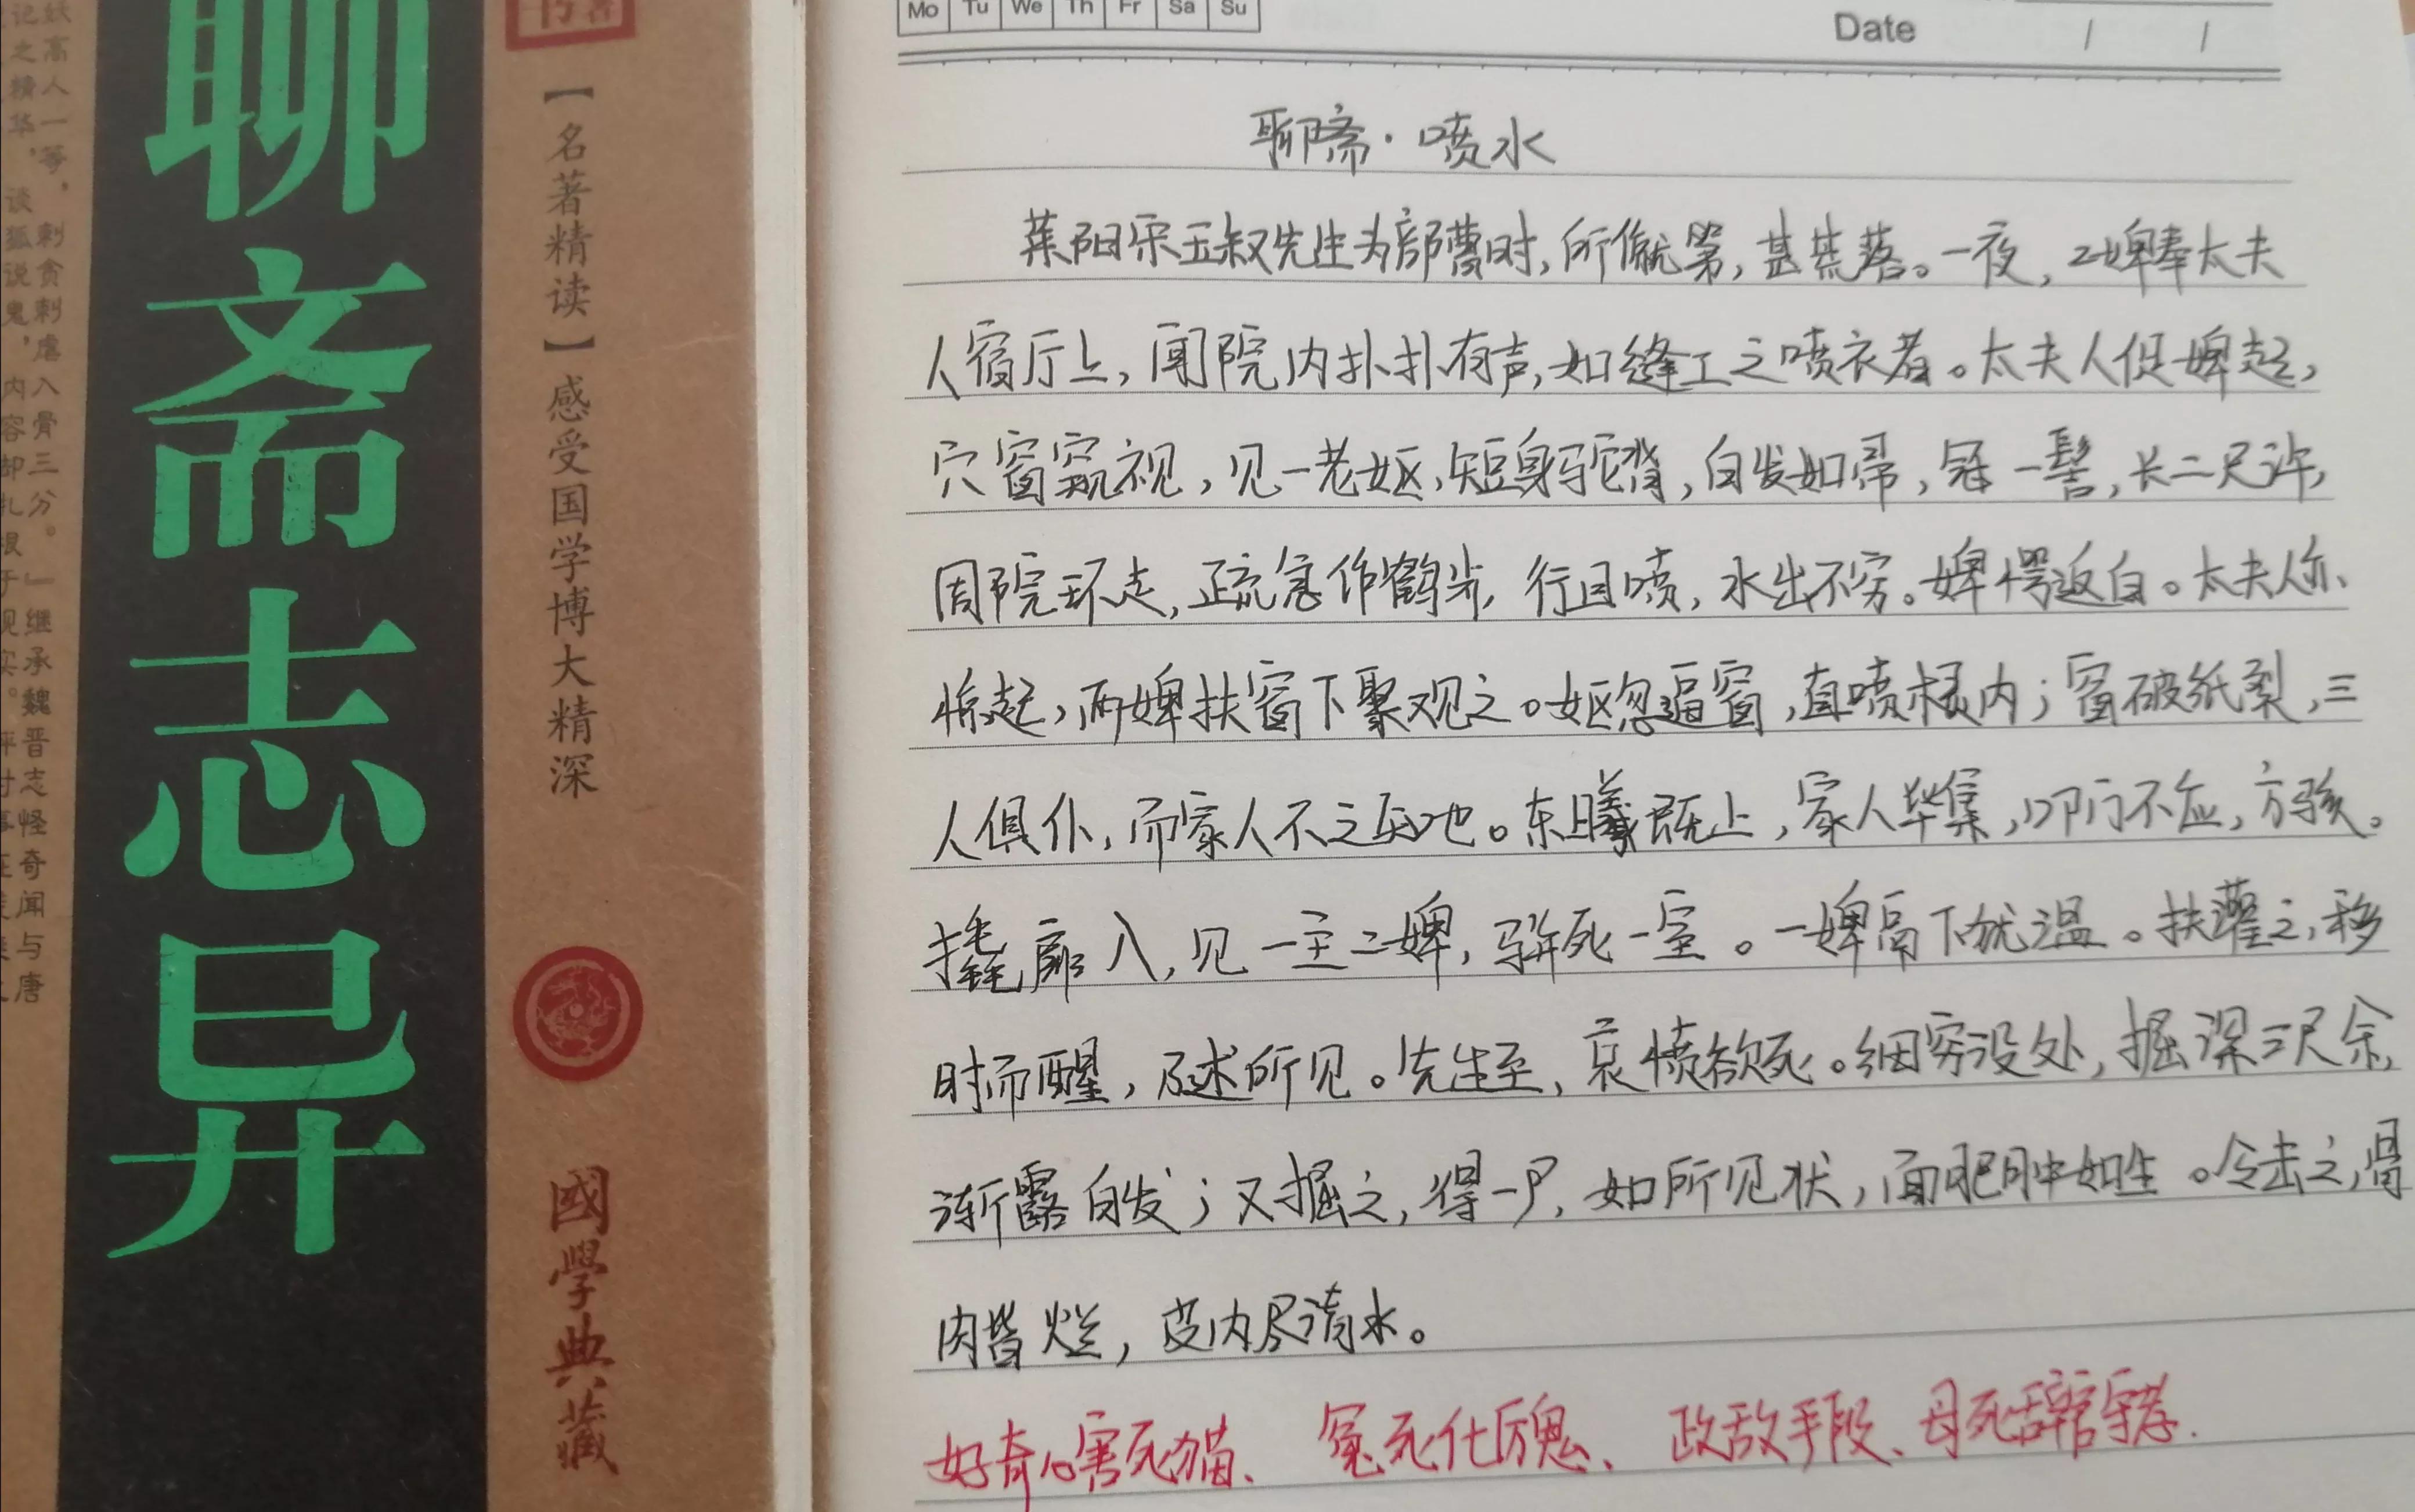 聊斋志异
【名著精读】感受国学博大精深
國學典藏
妖高人一等，刺贪刺虐入骨三分。
继承魏晋志怪奇闻与唐
记之精华，谈狐说鬼，内容
Mo Tu We Th Fr Sa Su
Date / /
聊斋·喷水
莱阳宋玉叔先生为部曹时，所僦第，甚荒落。一夜，二婢奉太夫
人宿厅上，闻院内扑扑有声，如缝工之喷衣者。太夫人促婢起，
穴窗窥视，见一老妪，短身驼背，白发如帚，冠一髻，长二尺许，
周院环走，疏急作鹤步，行且喷，水出不穷。婢愕返白。太夫人亦
惊起，两婢扶窗下聚观之。妪忽逼窗，直喷棂内；窗破纸裂，三
人俱仆，而家人不之知也。东曦既上，家人毕集，叩门不应，方骇。
撬扉入，见一主二婢，骈死一室。一婢鬲下犹温。扶灌之，移
时而醒，乃述所见。先生至，哀愤欲死。细穷没处，掘深三尺余，
渐露白发；又掘之，得一尸，如所见状，面肥肿如生。令击之，骨
肉皆烂，皮内尽清水。
好奇心害死猫、冤死化厉鬼、政敌手段、母死辞官守孝.